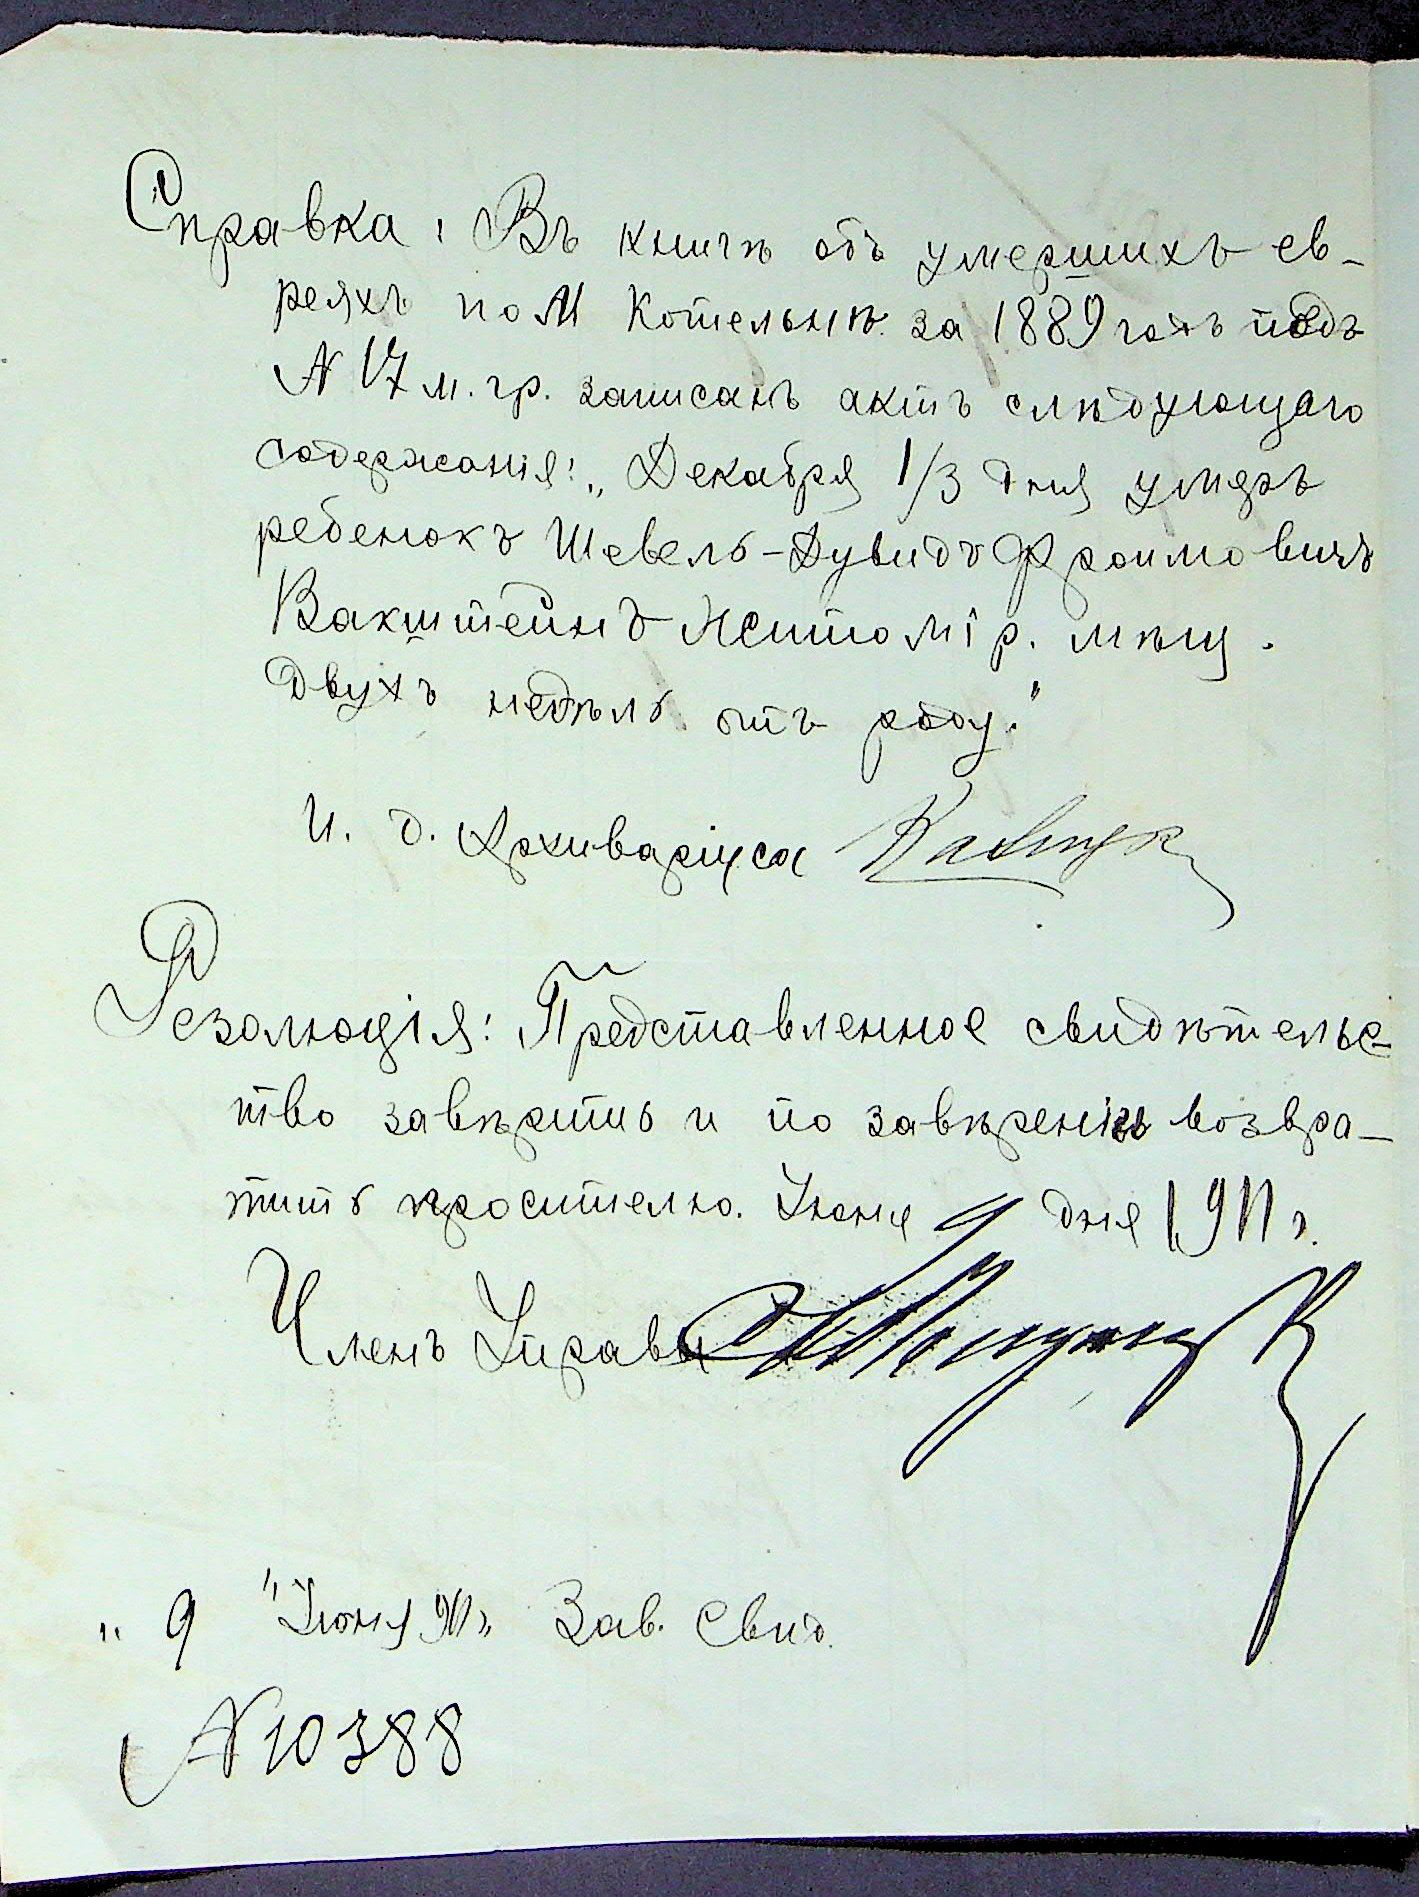 Справка: Въ книгѣ объ умершихъ ев-
реяхъ по М Котельнѣ за 1889 годъ подъ
№ 17 м. гр. записанъ актъ слѣдующаго
содержанія: „Декабря 1/3 дня умеръ
ребенокъ Шевель-Дувидъ Фроимовичъ
Вакштейнъ Житомір. мѣщ.
двухъ недѣль отъ роду."
И. д. Архиваріуса
Резолюція: Представленное свидѣтельс-
тво завѣрить и по завѣреніи возвра-
тить просителю. Іюня 9 дня 1911 г.
Членъ Управы
„ 9 " Іюня 911 г. Зав. Свид.
№ 10388